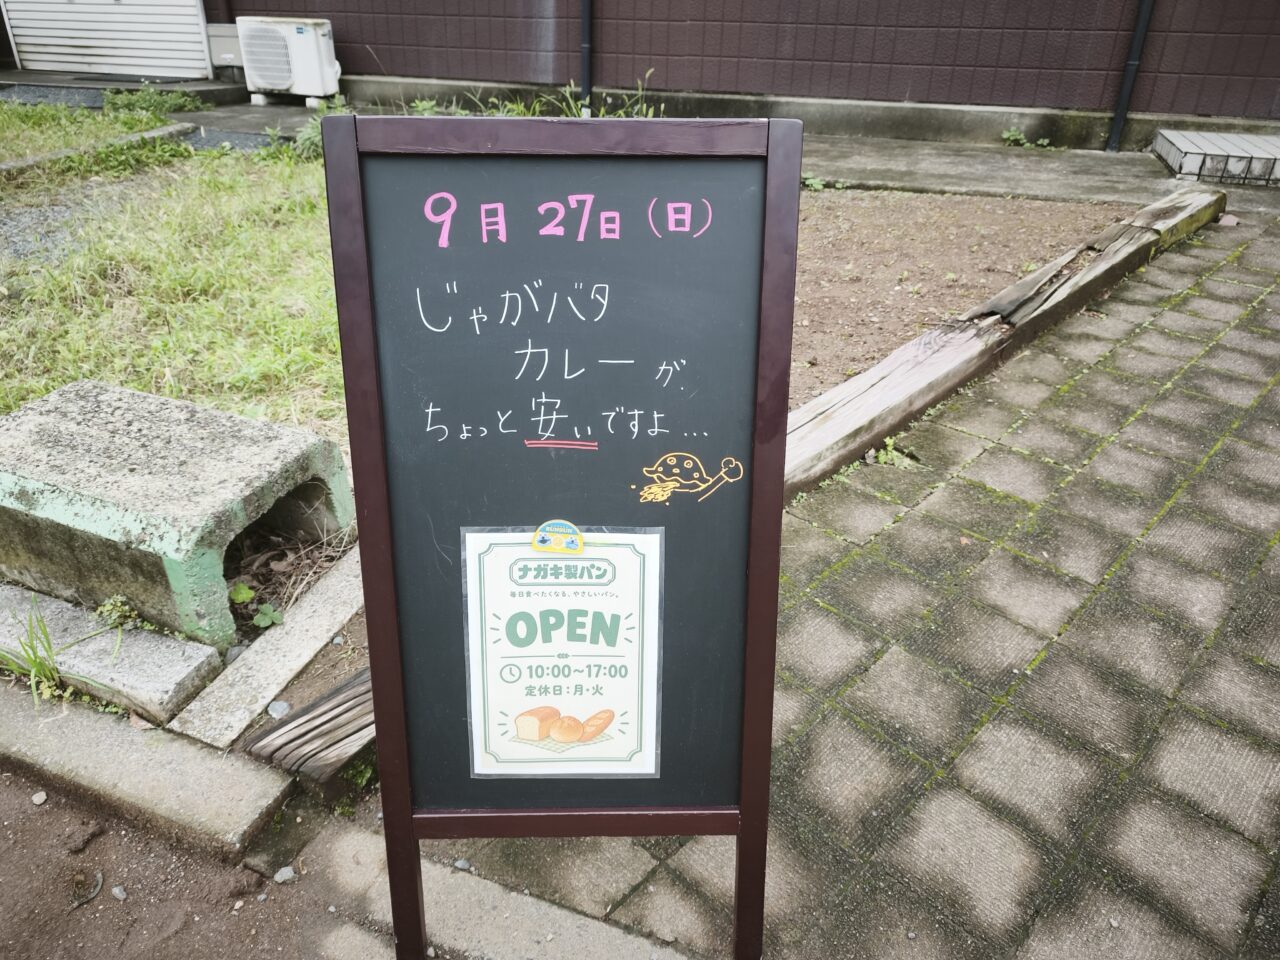 9月 27日（日）
じゃがバタ
カレーが
ちょっと安いですよ...
ナガキ製パン
毎日食べたくなる、やさしいパン。
OPEN
10:00〜17:00
定休日：月・火